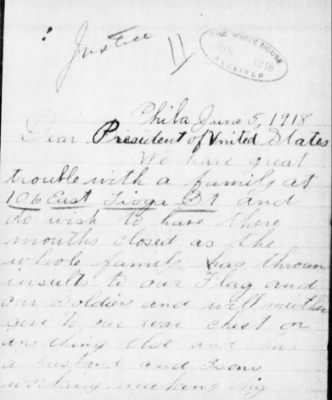 Justice
THE WHITE HOUSE
1918
RECEIVED
Phila June 5, 1918
Dear President of United States
We have great
trouble with a family at
106 East Tioga St and
do wish to have there
mouths closed as the
whole family has thrown
insults to our Flag and
our Soldiers and will neither
give to our war chest or
any thing else and has
a husband and Sons
working making big